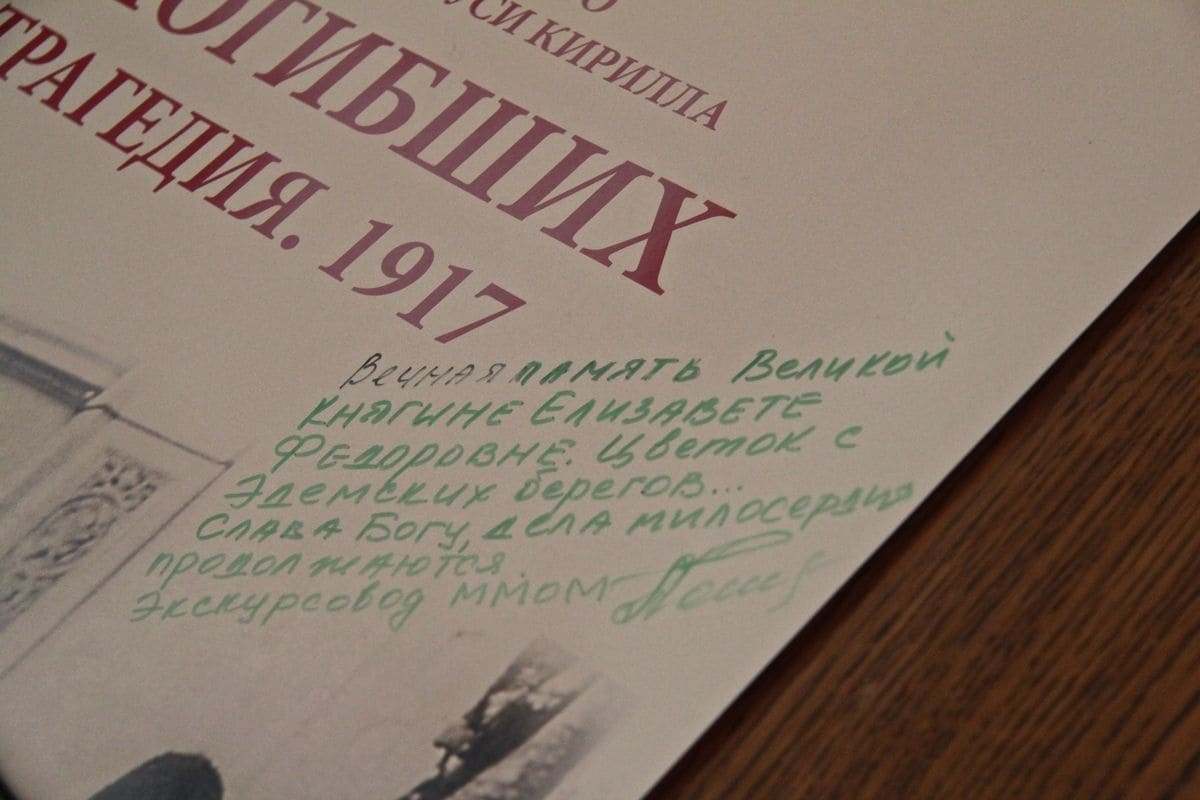 УСИ КИРИЛЛА
ОГИБШИХ
ТРАГЕДИЯ. 1917
Вечная память Великой
княгине Елизавете
Федоровне. Цветок с
Эдемских берегов...
Слава Богу, дела милосердия
продолжаются.
Экскурсовод ММОМ